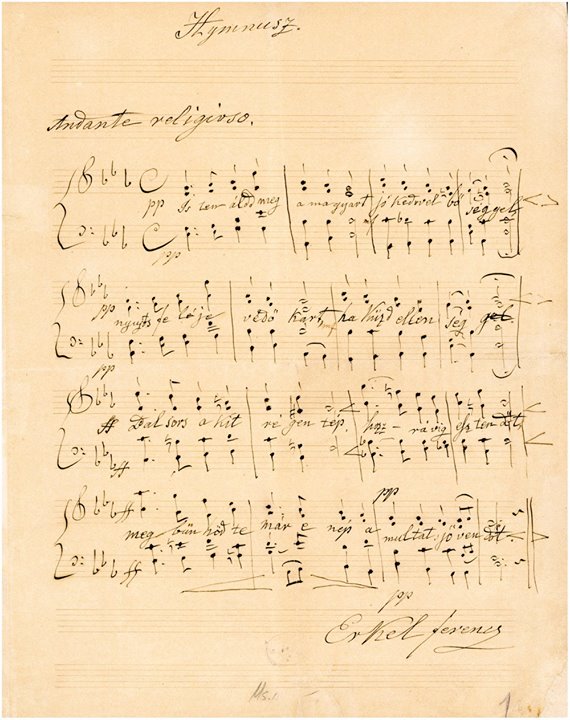 Hymnusz.
Andante religioso.
pp Is ten áldd meg a magyart jó kedvvel bő séggel
pp
pp nyujts fe léje védő kart, ha küzd ellen ség gel
pp
ff Bal sors a kit ré gen tép, hoz – rá víg esz ten dőt,
ff
pp
ff meg bün hőd te már e nép a multat, jö ven dőt
ff
pp
Erkel ferencz
Ms.
1